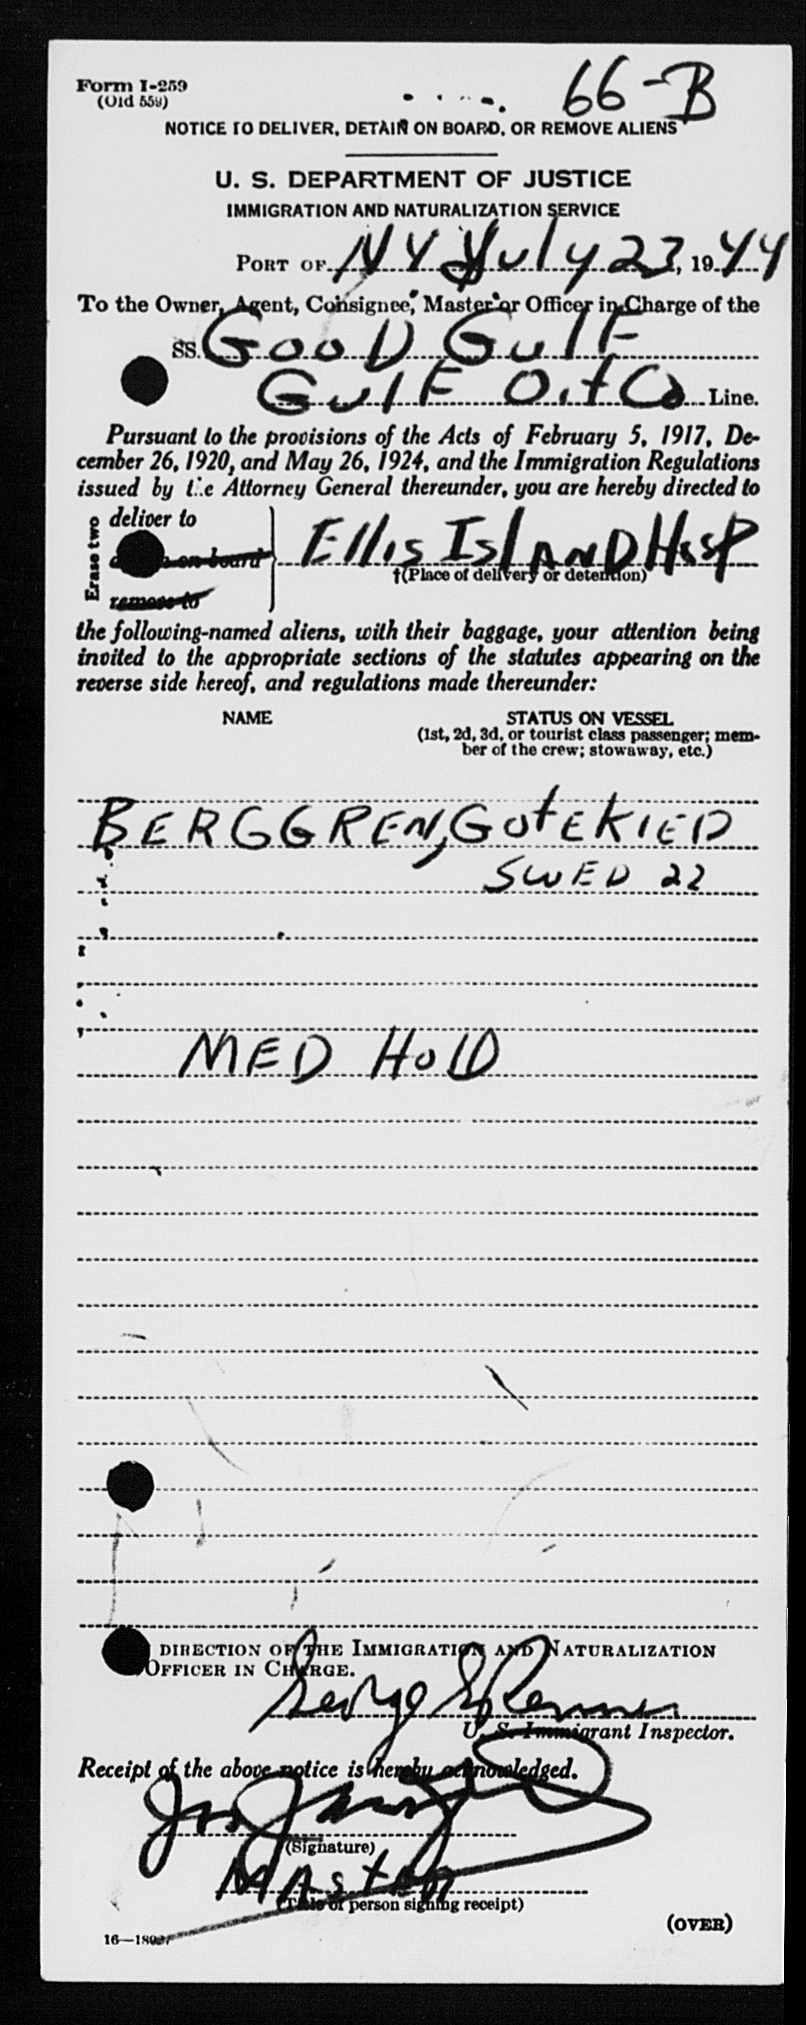 Form I-259
(Old 559)
66-B
NOTICE TO DELIVER, DETAIN ON BOARD, OR REMOVE ALIENS
U. S. DEPARTMENT OF JUSTICE
IMMIGRATION AND NATURALIZATION SERVICE
PORT OF NY July 23, 1944
To the Owner, Agent, Consignee, Master or Officer in Charge of the
SS. GOOD GULF
GULF OIL CO Line.
Pursuant to the provisions of the Acts of February 5, 1917, De-
cember 26, 1920, and May 26, 1924, and the Immigration Regulations
issued by the Attorney General thereunder, you are hereby directed to
Erase two
deliver to
on board
remove to
Ellis ISLAND Hosp
†(Place of delivery or detention)
the following-named aliens, with their baggage, your attention being
invited to the appropriate sections of the statutes appearing on the
reverse side hereof, and regulations made thereunder:
NAME STATUS ON VESSEL
(1st, 2d, 3d, or tourist class passenger; mem-
ber of the crew; stowaway, etc.)
BERGGREN, GOTEKIED
SWED 22
MED HOLD
DIRECTION OF THE IMMIGRATION AND NATURALIZATION
OFFICER IN CHARGE.
George
U. S. Immigrant Inspector.
Receipt of the above notice is hereby acknowledged.
(Signature)
MASTER
(Title of person signing receipt)
(OVER)